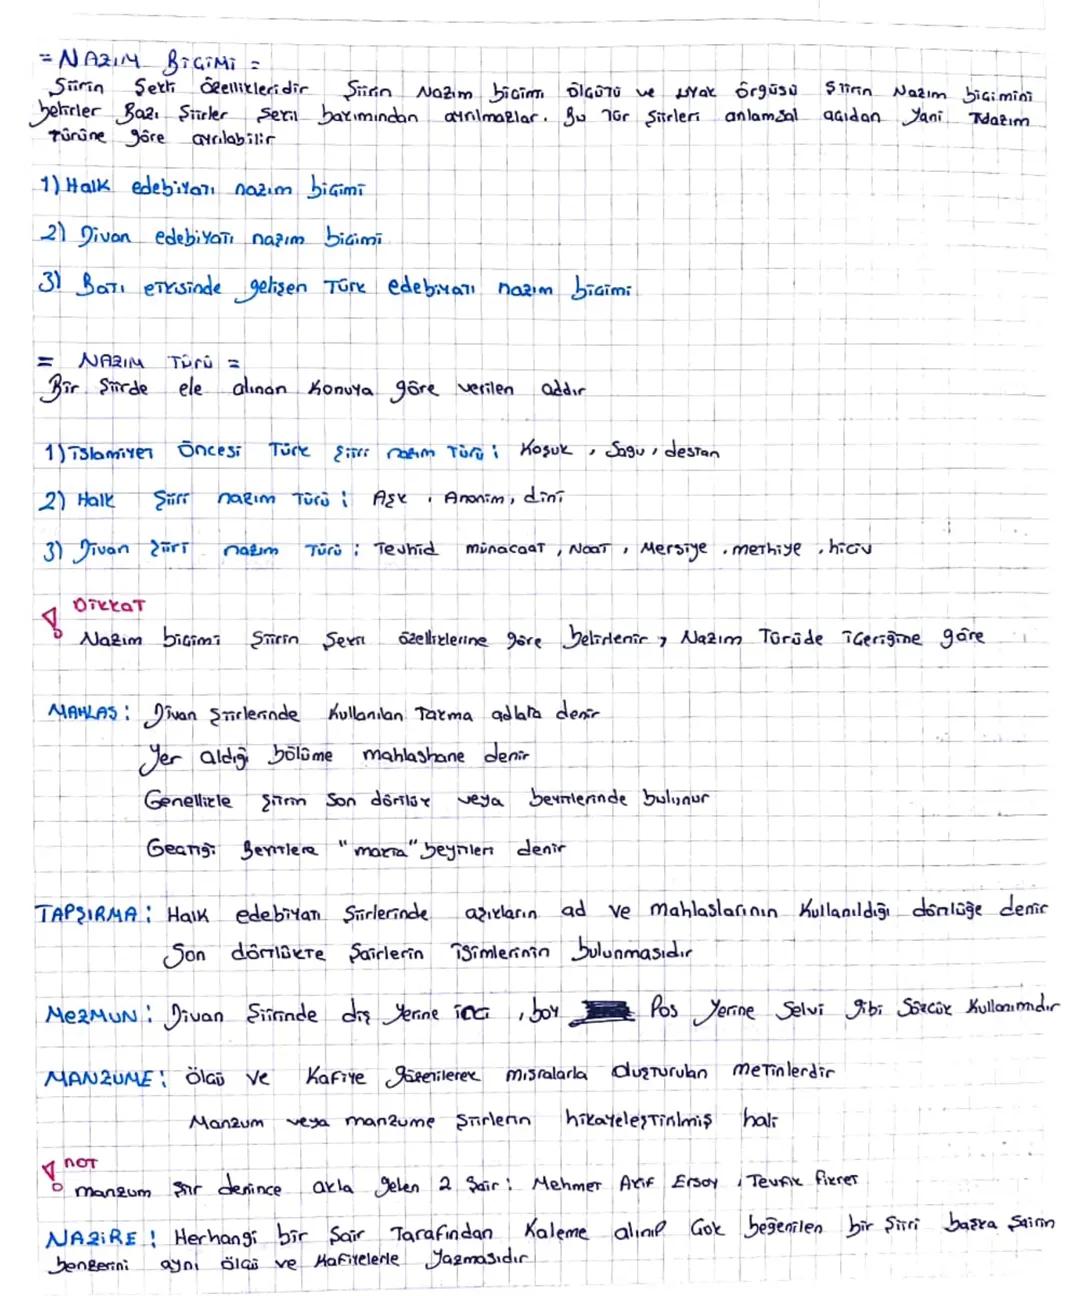 = NAZIM BİÇİMİ =
Şiirin Şekil özellikleridir Şiirin Nazım biçimi ölçütü ve uyak örgüsü Şiirin Nazım biçimini
belirler Bazı Şiirler Şekil bakımından ayrılmazlar. Bu Tür Şiirleri anlamsal açıdan Yani Nazım
Türüne göre ayrılabilir
1) Halk edebiyatı nazım biçimi
2) Divan edebiyatı nazım biçimi
3) Batı etkisinde gelişen Türk edebiyatı nazım biçimi
= NAZIM TÜRÜ =
Bir Şiirde ele alınan Konuya göre verilen addır
1) İslamiyet Öncesi Türk Şiiri nazım Türü : Koşuk , Sagu , destan
2) Halk Şiiri nazım Türü : Aşk , Anonim, dini
3) Divan Şiiri nazım Türü : Tevhid münacaat , Naat , Mersiye , methiye , hiciv
DİKKAT
Nazım biçimi Şiirin Şekil özelliklerine göre belirlenir , Nazım Türüde içeriğine göre
MAHLAS : Divan Şiirlerinde Kullanılan Takma adlara denir
Yer aldığı bölüme mahlashane denir
Genellikle Şiirin Son dörtlük veya beyitlerinde bulunur
Geçtiği Beyitlere "makta" beyitleri denir
TAPŞIRMA : Halk edebiyatı Şiirlerinde aşıkların ad ve mahlaslarının Kullanıldığı dörtlüğe denir
Son dörtlükte Şairlerin isimlerinin bulunmasıdır
MEZMUN : Divan Şiirinde diş Yerine inci , boy Pos Yerine Selvi gibi Sözcük Kullanımıdır
MANZUME : ölçü ve Kafiye gözetilerek mısralarla oluşturulan metinlerdir
Manzum veya manzume Şiirlerin hikayeleştirilmiş hali
NOT
manzum Şiir denince akla gelen 2 Şair : Mehmet Akif Ersoy , Tevfik Fikret
NAZİRE : Herhangi bir Şair Tarafından Kaleme alınıp Çok beğenilen bir Şiiri başka Şairin
benzerini aynı ölçü ve Kafiyelerle Yazmasıdır